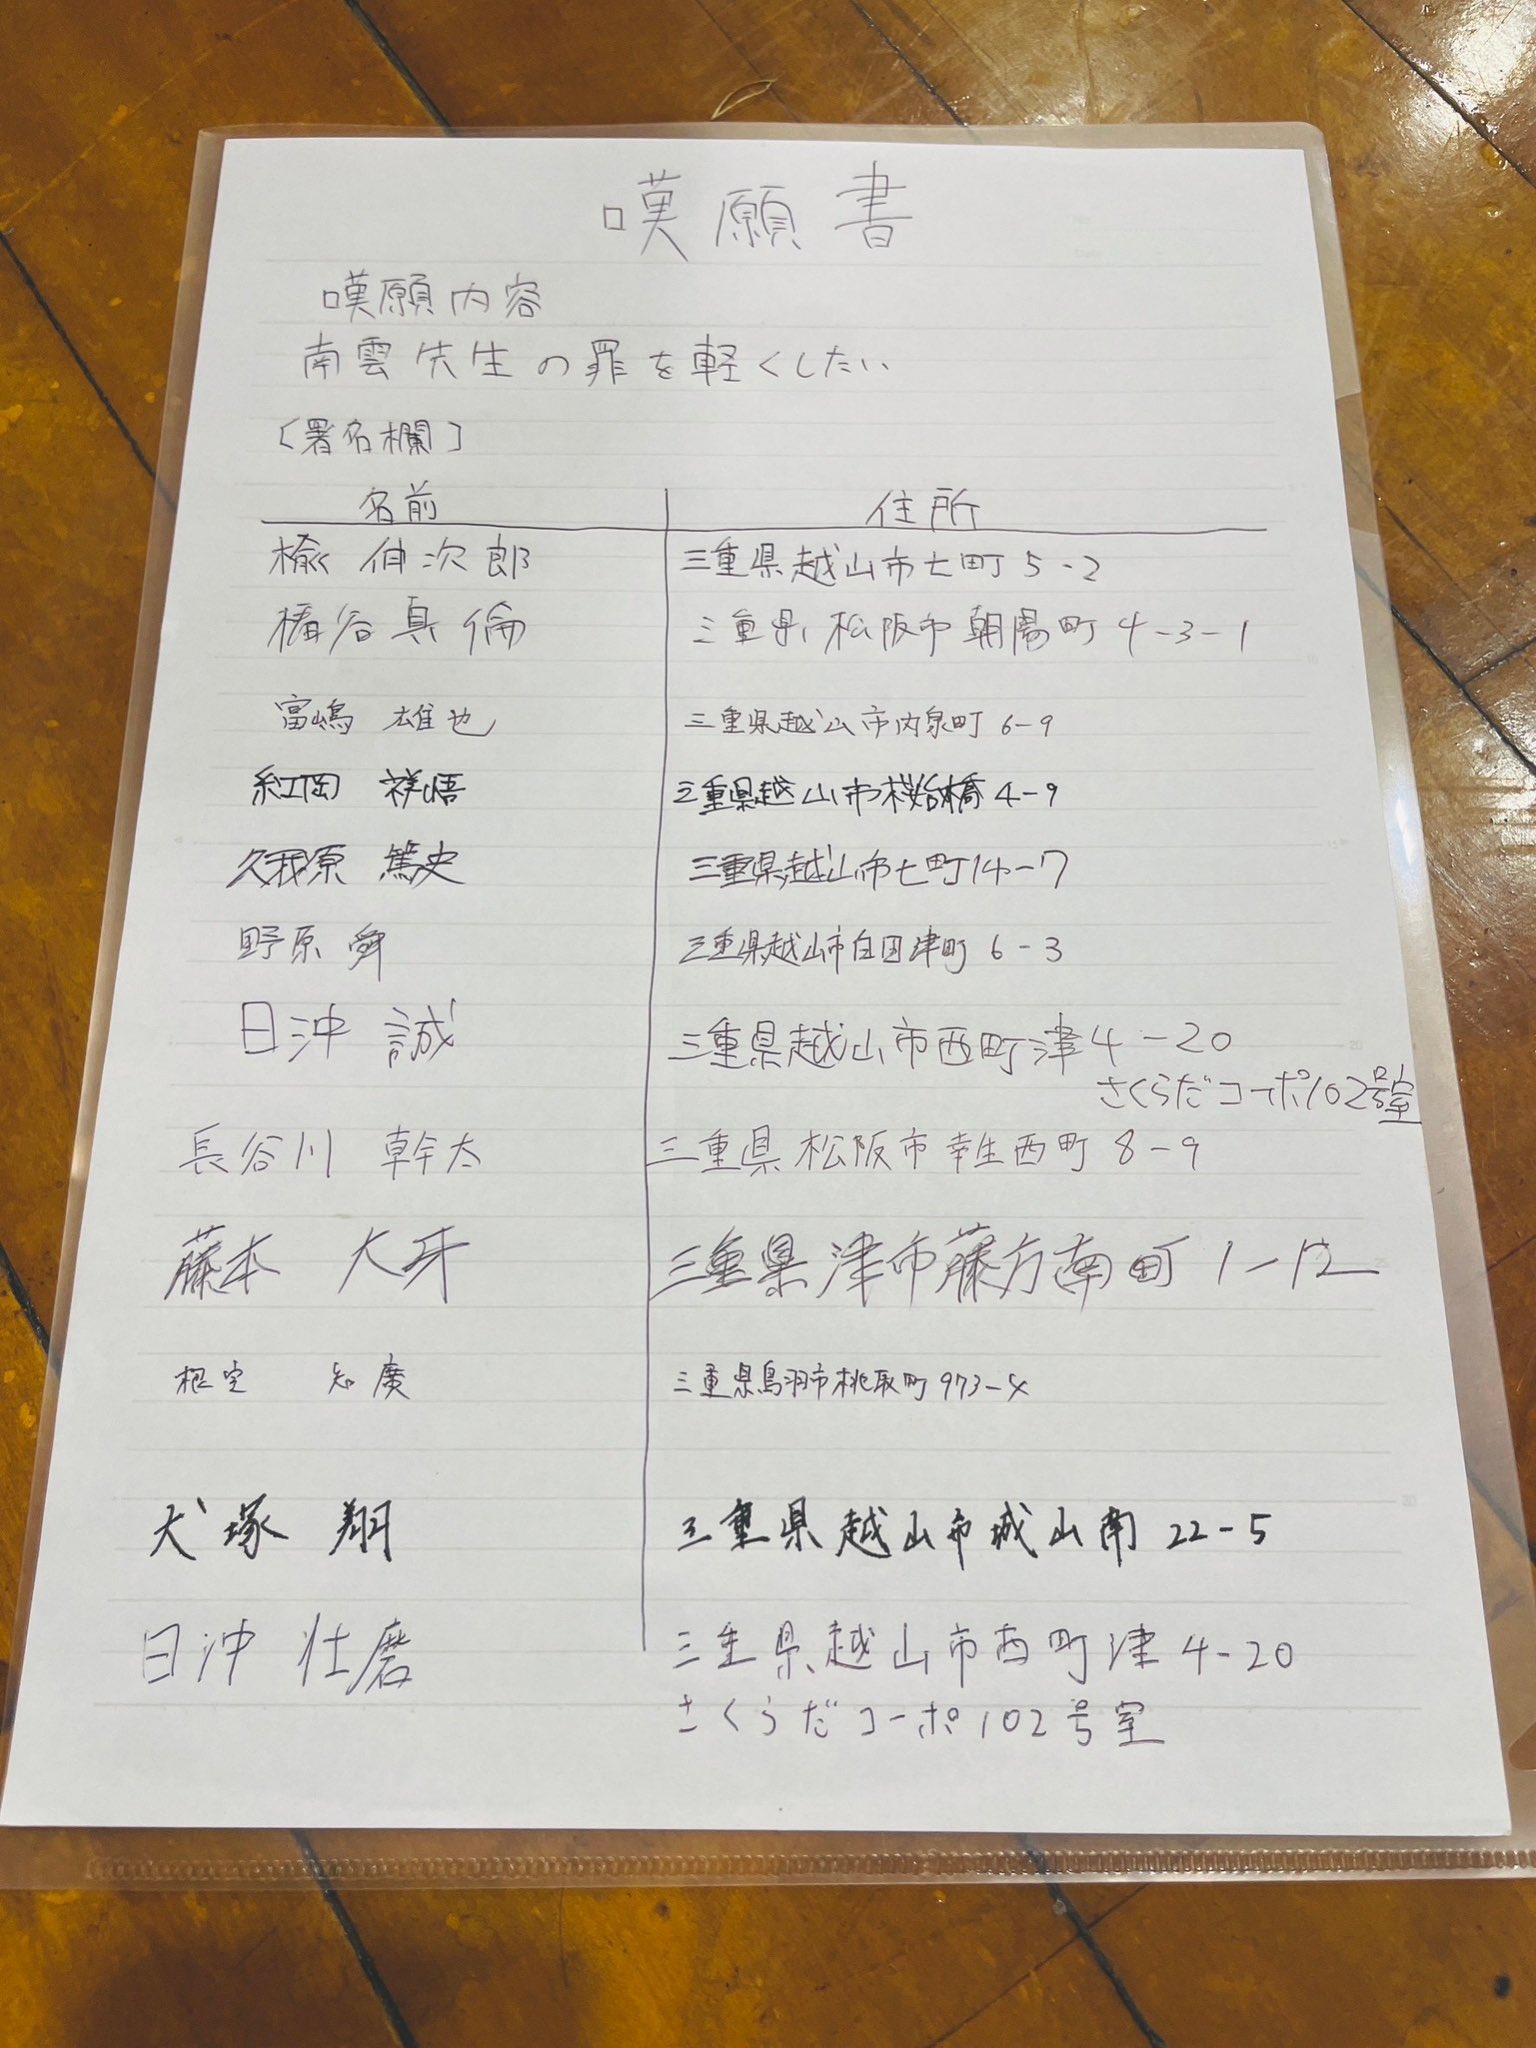 嘆願書
嘆願内容
南雲先生の罪を軽くしたい
〔署名欄〕
名前 住所
楡 伸次郎 三重県越山市七町5-2
椿谷真倫 三重県松阪市朝陽町4-3-1
富嶋 雄也 三重県越山市内泉町6-9
紅岡 祥悟 三重県越山市桜始橋4-9
久我原 篤史 三重県越山市七町14-7
野原 舜 三重県越山市白田津町6-3
日沖 誠 三重県越山市西町津4-20
さくらだコーポ102号室
長谷川 幹太 三重県松阪市幸生西町8-9
藤本 大牙 三重県津市藤方南町1-12
根室 知廣 三重県鳥羽市桃取町973-4
犬塚 翔 三重県越山市城山南22-5
日沖 壮磨 三重県越山市西町津4-20
さくらだコーポ102号室